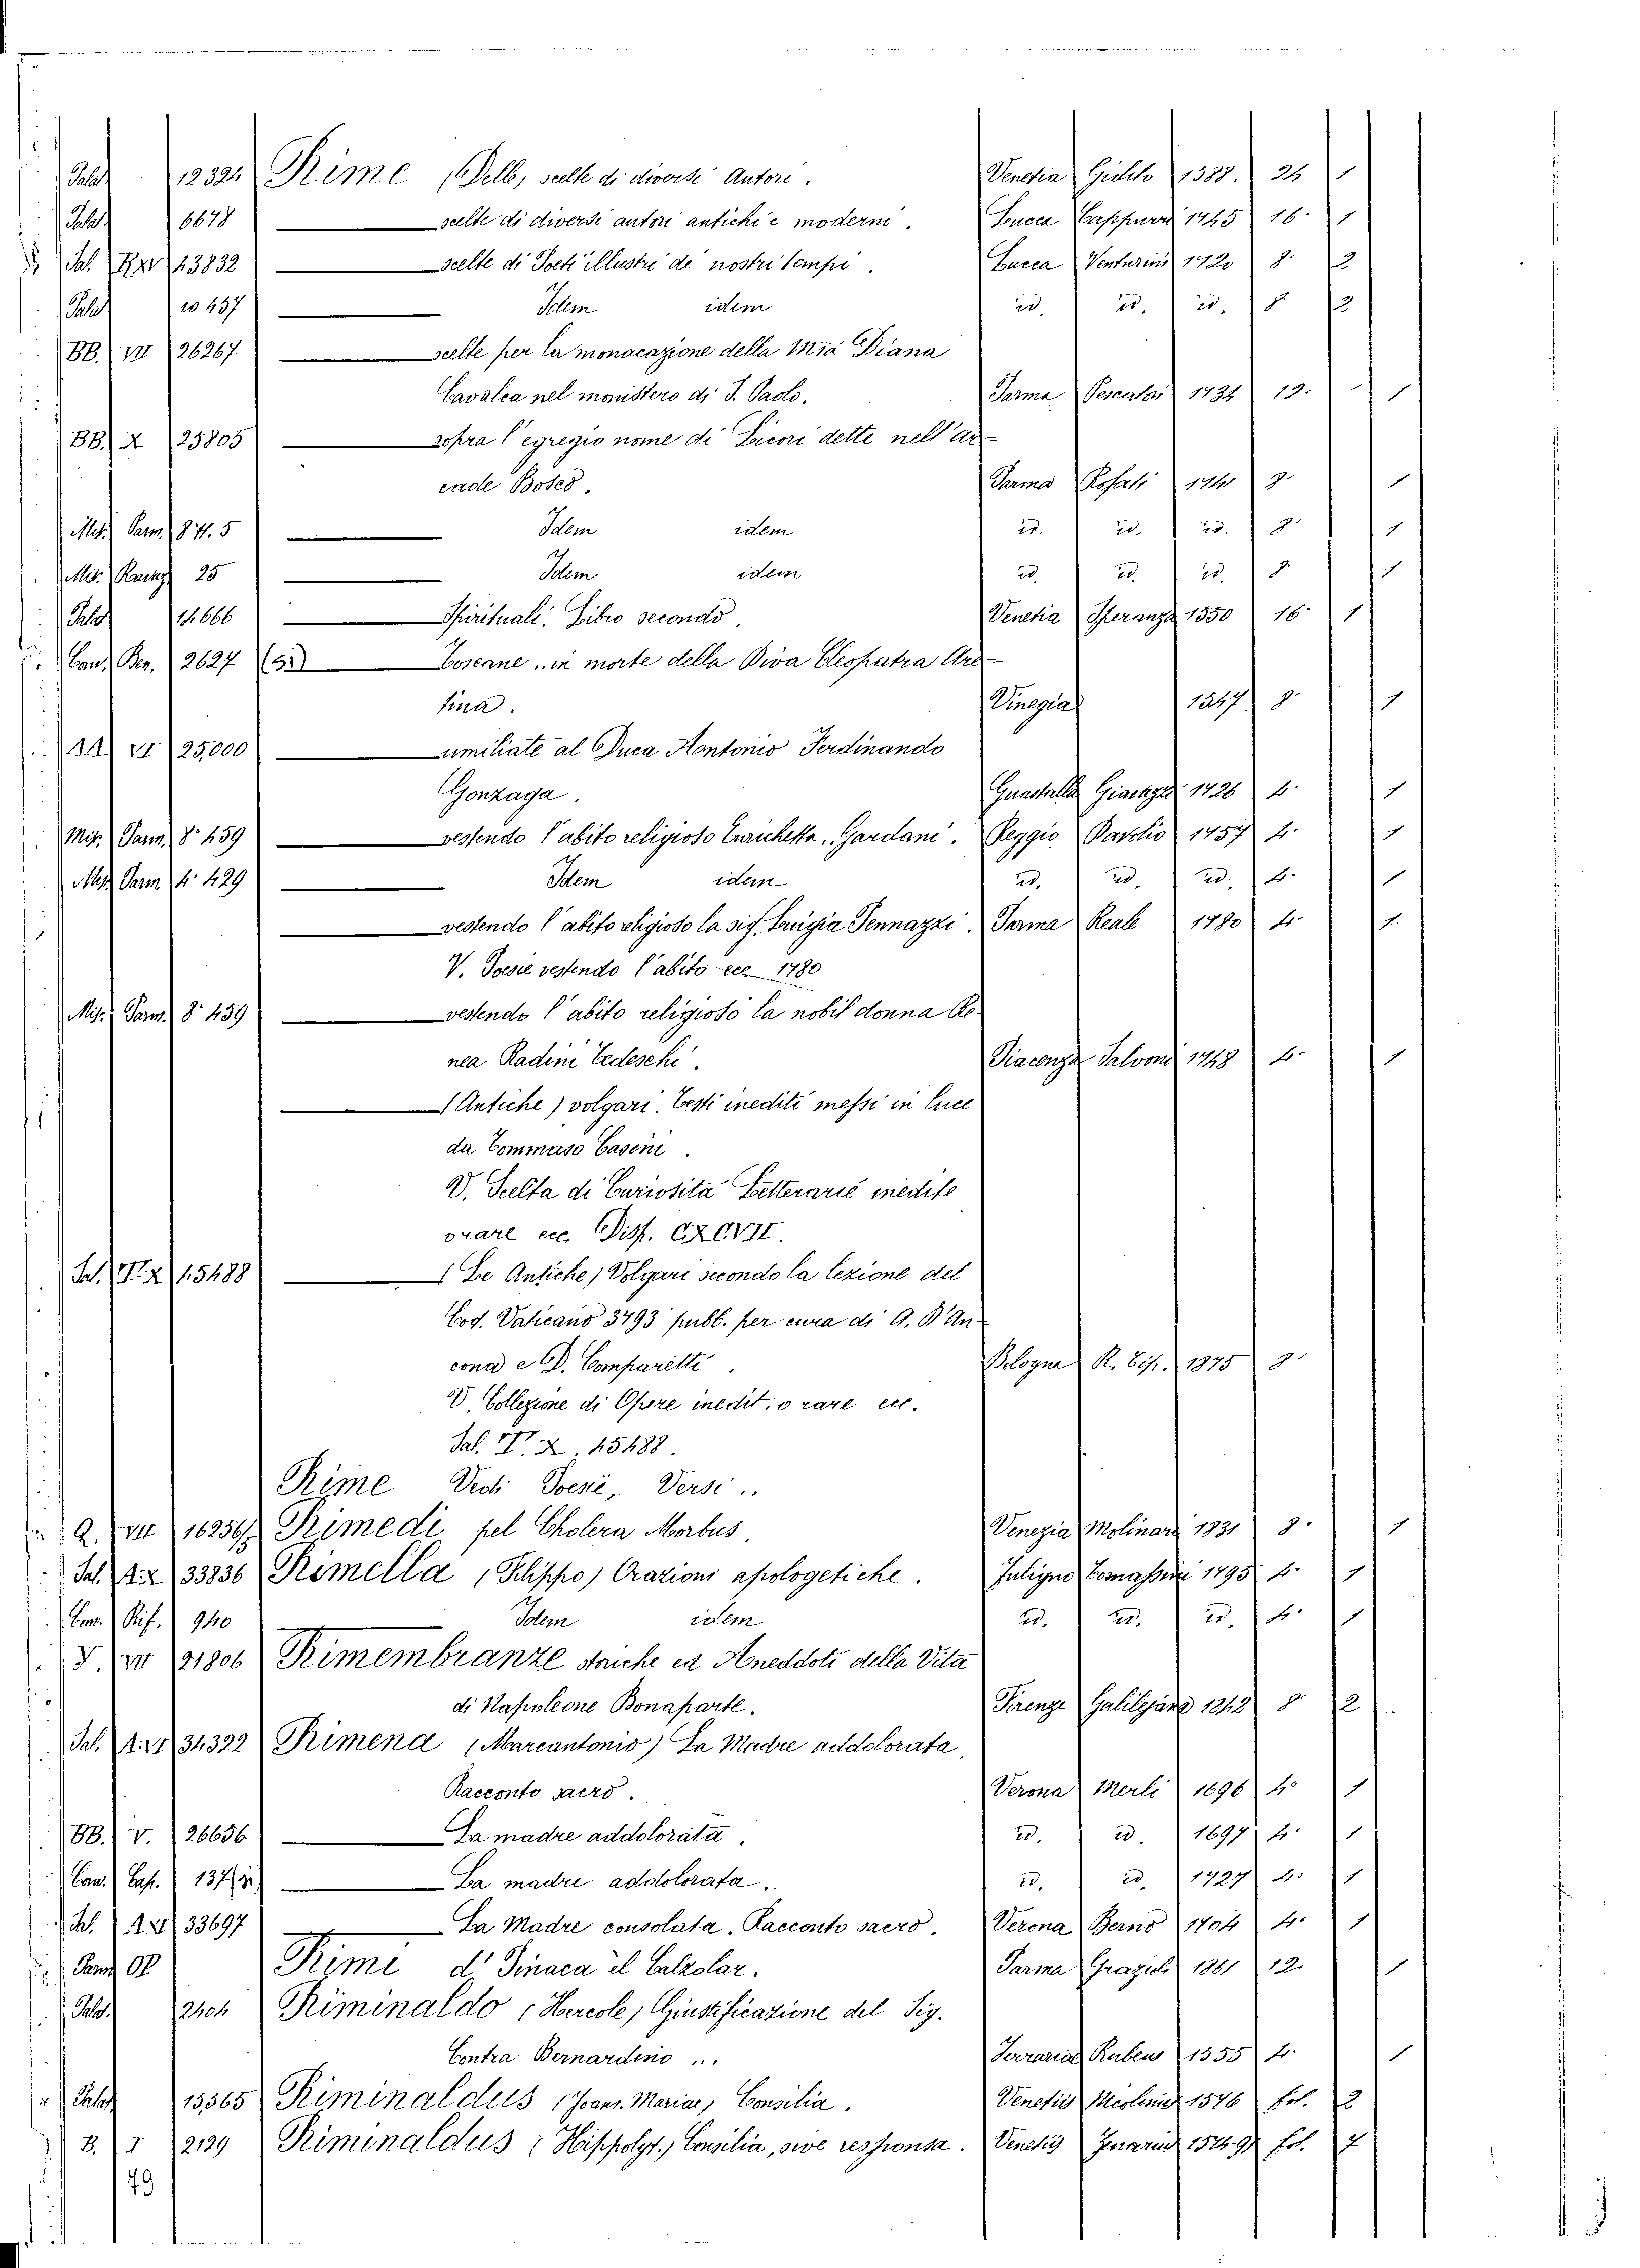 Palat 12324 Rime (Delle) scelte di diversi Autori. Venetia Giolito 1588. 24 1
Palat. 6678 scelte di diversi autori antichi e moderni. Lucca Cappurri 1745 16. 1
Sal. 43832 scelte di Poeti illustri de nostri tempi. Lucca Venturini 1720 8. 2
Palat 10437 Idem idem id. id. id. 8 2
BB. VII 26267 scelte per la monacazione della Mia Diana
Cavalca nel monistero di S. Paolo. Parma Pescatori 1731 12. 1
BB. X 25805 sopra l'egregio nome di Licori dette nell'Ar-
cade Botes. Parma Rosati 1741 8. 1
Mis. Parm. 8° 4. 5 Idem idem id. id. id. 8. 1
Mis. 25 Idem idem id. id. id. 8 1
Palat 14666 Spirituali. Libro secondo. Venetia Speranza 1550 16. 1
Con. Ben. 2627 Toscane.. in morte della Diva Cleopatra Are-
tina. Vinegia 1547 8. 1
AA VI 25,000 umiliate al Duca Antonio Ferdinando
Gonzaga. Guastalla 1726 4. 1
Mis. Parm. 8° 459 vestendo l'abito religioso Enrichetta.. Gardani. Reggio 1757 4. 1
Mis. Parm 4° 429 Idem idem id. id. id. 4. 1
vestendo l'abito religioso la sig. Luigia Pennazzi. Parma Reale 1780 4. 1.
V. Poesie vestendo l'abito ecc. 1780
Mis. Parm. 8° 459 vestendo l'abito religioso la nobil donna Re-
nea Radini Tedeschi. Piacenza Salvoni 1748 4. 1
(Antiche) volgari. Testi inediti messi in luce
da Tommaso Casini.
V. Scelta di Curiosità Letterarie inedite
o rare ecc. Disp. CXCVII.
Sal. X 45488 (Le Antiche) Volgari secondo la lezione del
Cod. Vaticano 3793 pubb. per cura di A. D'An-
cona e D. Comparetti. Bologna R. Tip. 1875 8.
V. Collezione di Opere inedit. o rare ecc.
Sal. X. 45488.
Rime Vedi Poesie, Versi..
Q. VII 16256/2 Rimedi pel Cholera Morbus. Venezia Molinari 1831 8. 1
Sal. 33836 Rimella (Filippo) Orazioni apologetiche. Fuligno Tomassini 1795 4. 1
Con. Rif. 940 Idem idem id. id. id. 4. 1
V. VII 21806 Rimembranze storiche ed Aneddoti della Vita
di Napoleone Bonaparte. Firenze Galilejana 1842 8 2
Sal. 34322 Rimena (Marcantonio) La Madre addolorata,
Racconto sacro. Verona Merli 1696 4° 1
BB. V. 26656 La madre addolorata. id. id. 1697 4. 1
Con. Cap. 137 La madre addolorata. id. id. 1727 4. 1
Sal. 33697 La Madre consolata. Racconto sacro. Verona Berno 1704 4. 1
Parm. Rime d' Pinaca il Calzolar. Parma Grazioli 1861 12. 1
Palat. 2404 Riminaldo (Hercole) Giustificazione del Sig.
Contra Bernardino ... Ferrariae Rubeus 1555 4. 1
Palat 15,565 Riminaldus (Joans. Mariae) Consilia. Venetiis 1576 fol. 2
B. I 2129 Riminaldus (Hippolyt.) Consilia, sive responsa. Venetiis fol. 7
79